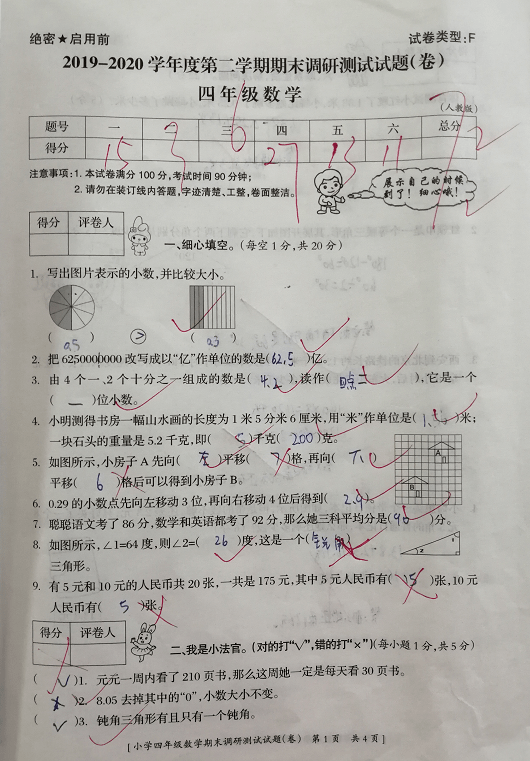 绝密★启用前
试卷类型:F
2019-2020 学年度第二学期期末调研测试试题(卷)
四年级数学
(人教版)
题号 一 二 三 四 五 六 总分
得分 15 3 6 27 13 11 72
注意事项:1. 本试卷满分 100 分,考试时间 90 分钟;
2. 请勿在装订线内答题,字迹清楚、工整,卷面整洁。
展示自己的时候
到了!细心哦!
得分 评卷人
一、细心填空。(每空 1 分,共 20 分)
1. 写出图片表示的小数,并比较大小。
( 0.5 ) > ( 0.3 )
2. 把 6250000000 改写成以“亿”作单位的数是( 62.5 )亿。
3. 由 4 个一、2 个十分之一组成的数是( 4.2 ),读作( 四点二 ),它是一个
( 一 )位小数。
4. 小明测得书房一幅山水画的长度为 1 米 5 分米 6 厘米,用“米”作单位是( )米;
一块石头的重量是 5.2 千克,即( 5 )千克( 200 )克。
5. 如图所示,小房子 A 先向( 左 )平移( )格,再向( 下 )
平移( 6 )格后可以得到小房子 B。
A
B
6. 0.29 的小数点先向左移动 3 位,再向右移动 4 位后得到( 2.9 )。
7. 聪聪语文考了 86 分,数学和英语都考了 92 分,那么她三科平均分是( 90 )分。
8. 如图所示,∠1=64 度,则∠2=( 26 )度,这是一个( )
三角形。
1
2
9. 有 5 元和 10 元的人民币共 20 张,一共是 175 元,其中 5 元人民币有( 15 )张,10 元
人民币有( 5 )张。
得分 评卷人
二、我是小法官。(对的打“√”,错的打“×”)(每小题 1 分,共 5 分)
( √ )1. 元元一周内看了 210 页书,那么这周她一定是每天看 30 页书。
( × )2. 8.05 去掉其中的“0”,小数大小不变。
( √ )3. 钝角三角形有且只有一个钝角。
[小学四年级数学期末调研测试试题(卷) 第 1 页 共 4 页]